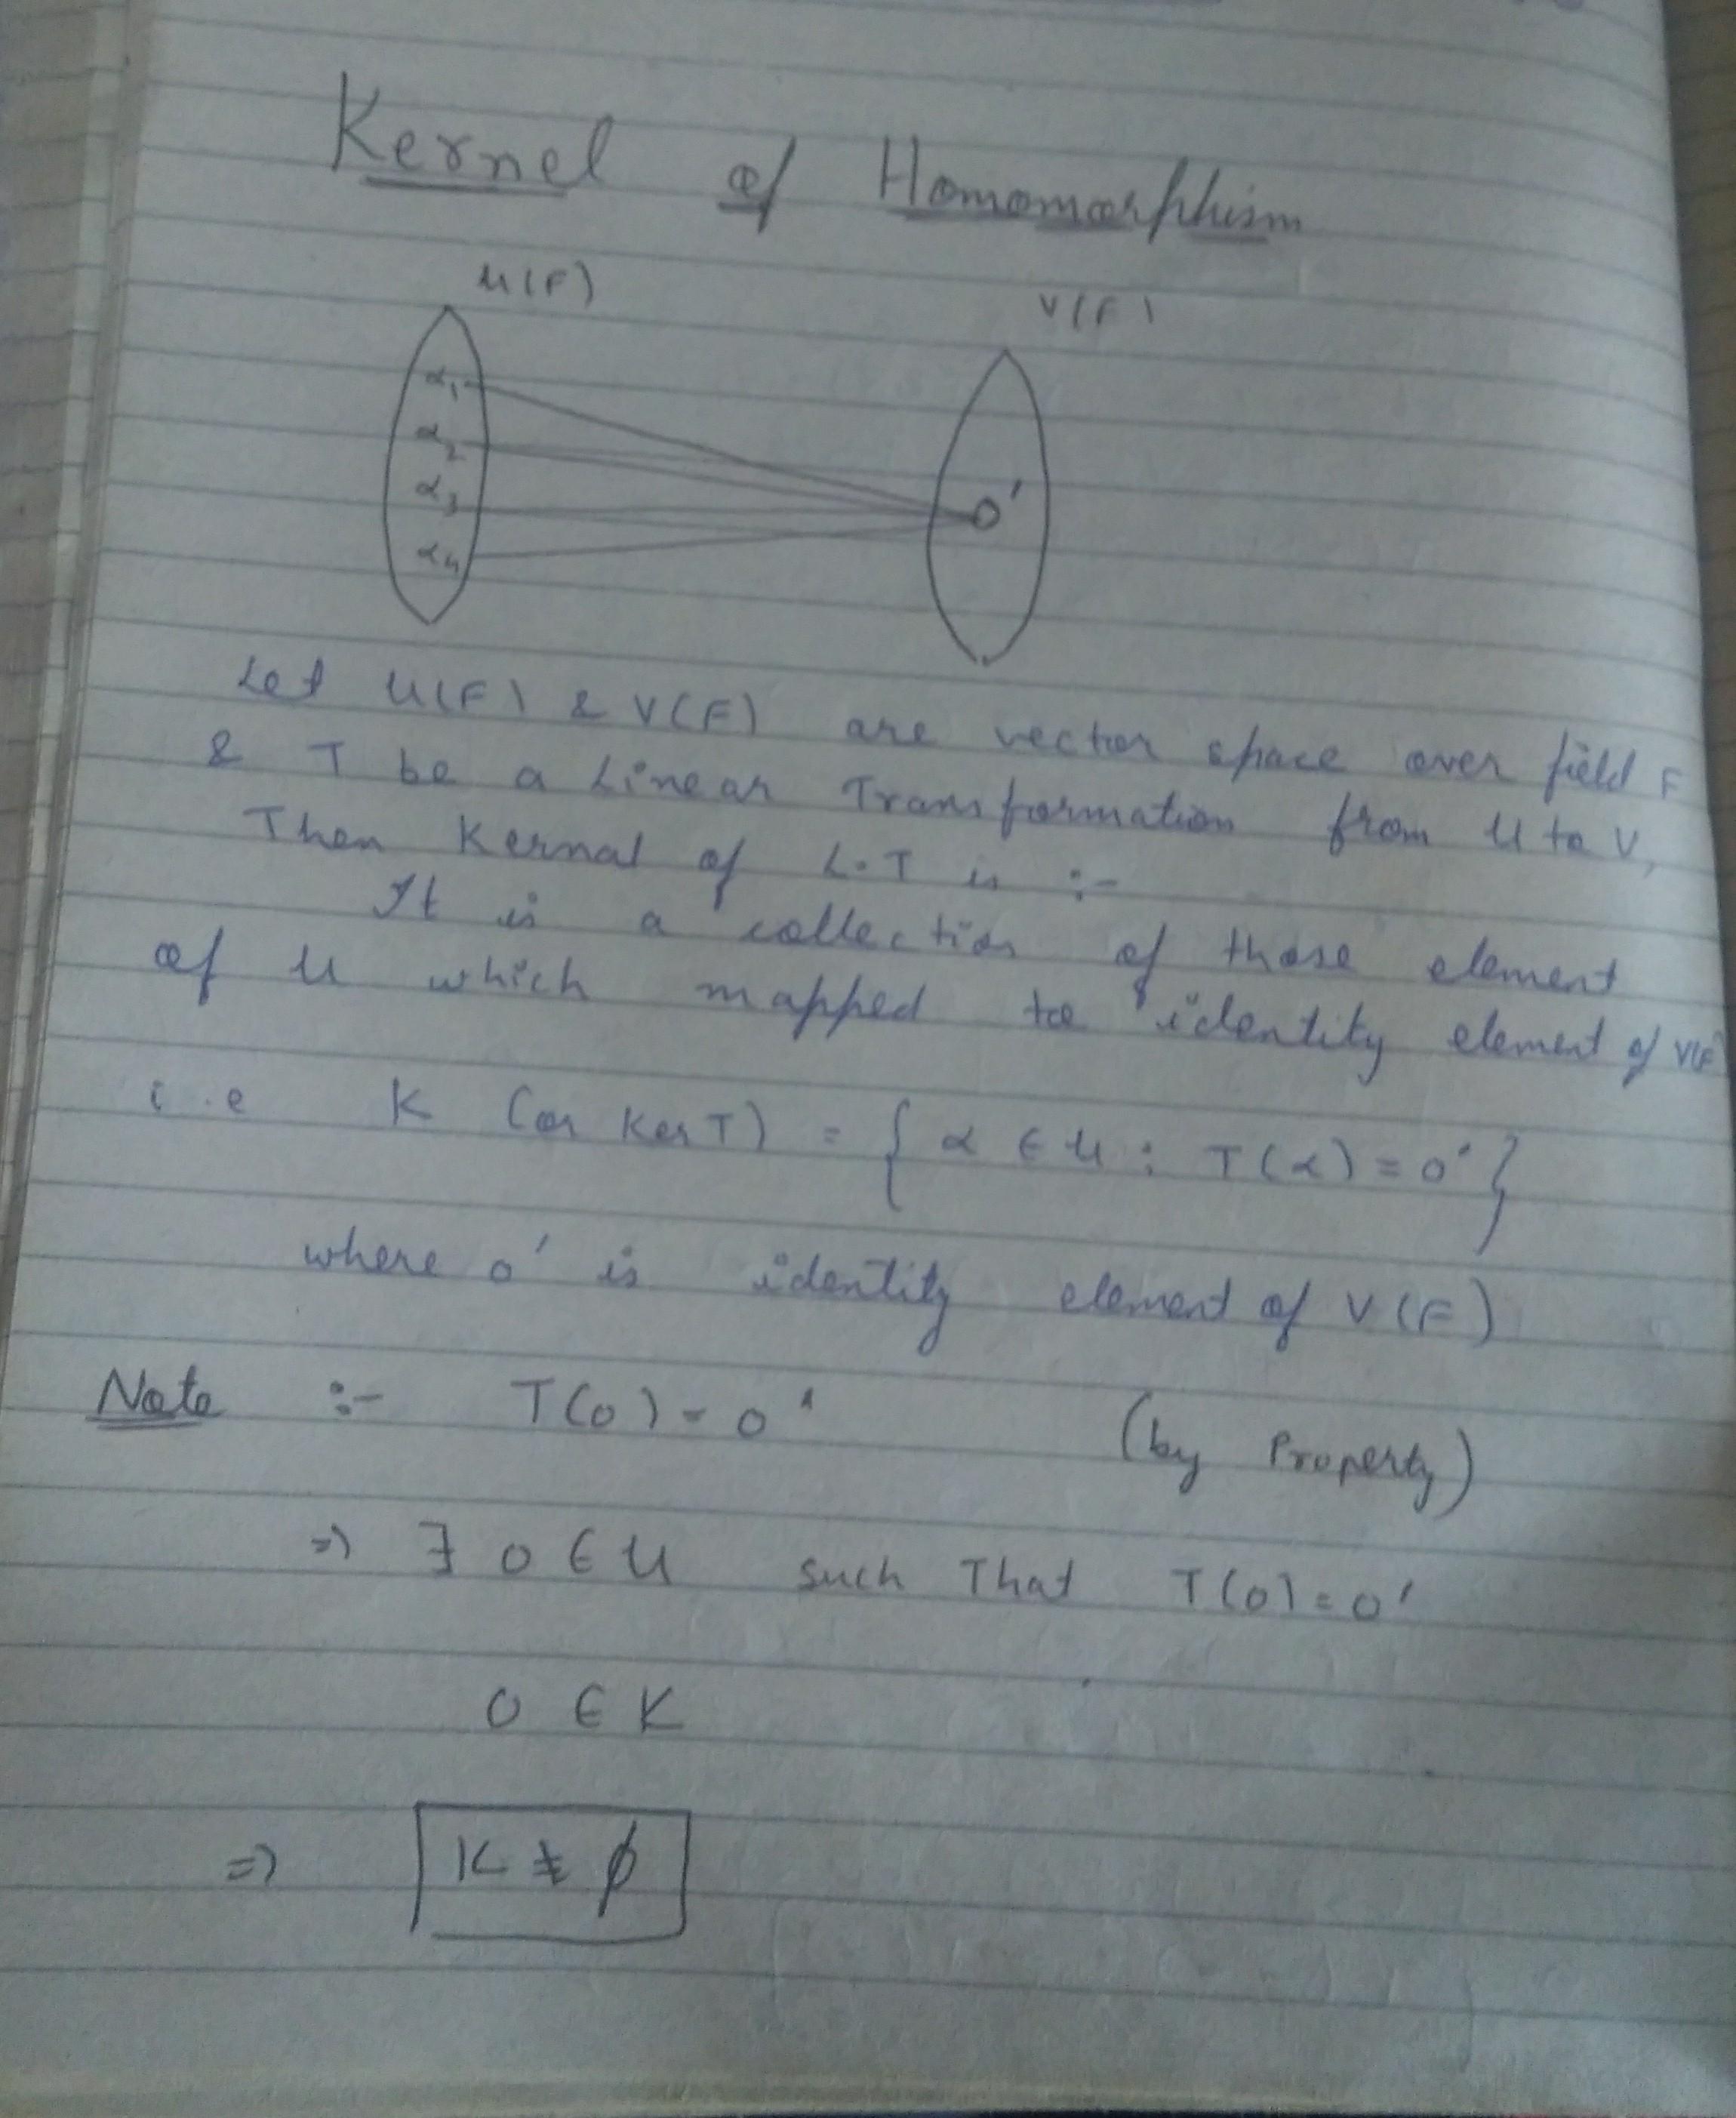 Kernel of Homomorphism
U(F) V(F)
α₁
α₂
α₃
α₄
0'
Let U(F) & V(F) are vector space over field F
& T be a Linear Transformation from U to V,
Then Kernal of L.T is :-
It is a collection of those element
of U which mapped to identity element of V(F
i.e K (or Ker T) = { α ∈ U : T(α) = 0' }
where 0' is identity element of V(F)
Note :- T(0) = 0' (by Property)
⇒ ∃ 0 ∈ U such That T(0) = 0'
0 ∈ K
⇒ K ≠ ϕ